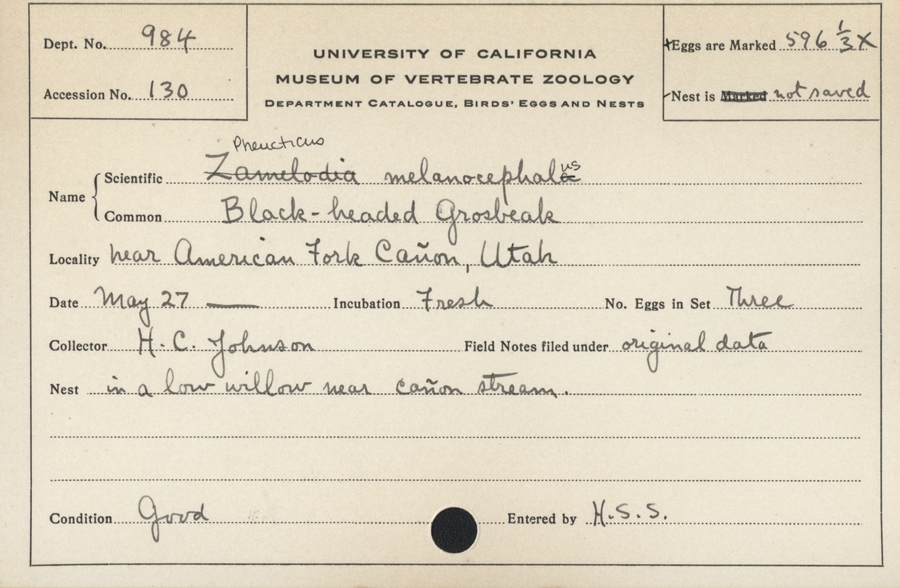 Dept. No. 984
Accession No. 130
UNIVERSITY OF CALIFORNIA
MUSEUM OF VERTEBRATE ZOOLOGY
DEPARTMENT CATALOGUE, BIRDS' EGGS AND NESTS
Eggs are Marked 596 1/3 X
Nest is Marked not saved
Pheucticus
Name Scientific Zamelodia melanocephalus
Common Black-headed Grosbeak
Locality near American Fork Cañon, Utah
Date May 27 — Incubation Fresh No. Eggs in Set Three
Collector H. C. Johnson Field Notes filed under original data
Nest in a low willow near cañon stream.
Condition Good Entered by H.S.S.